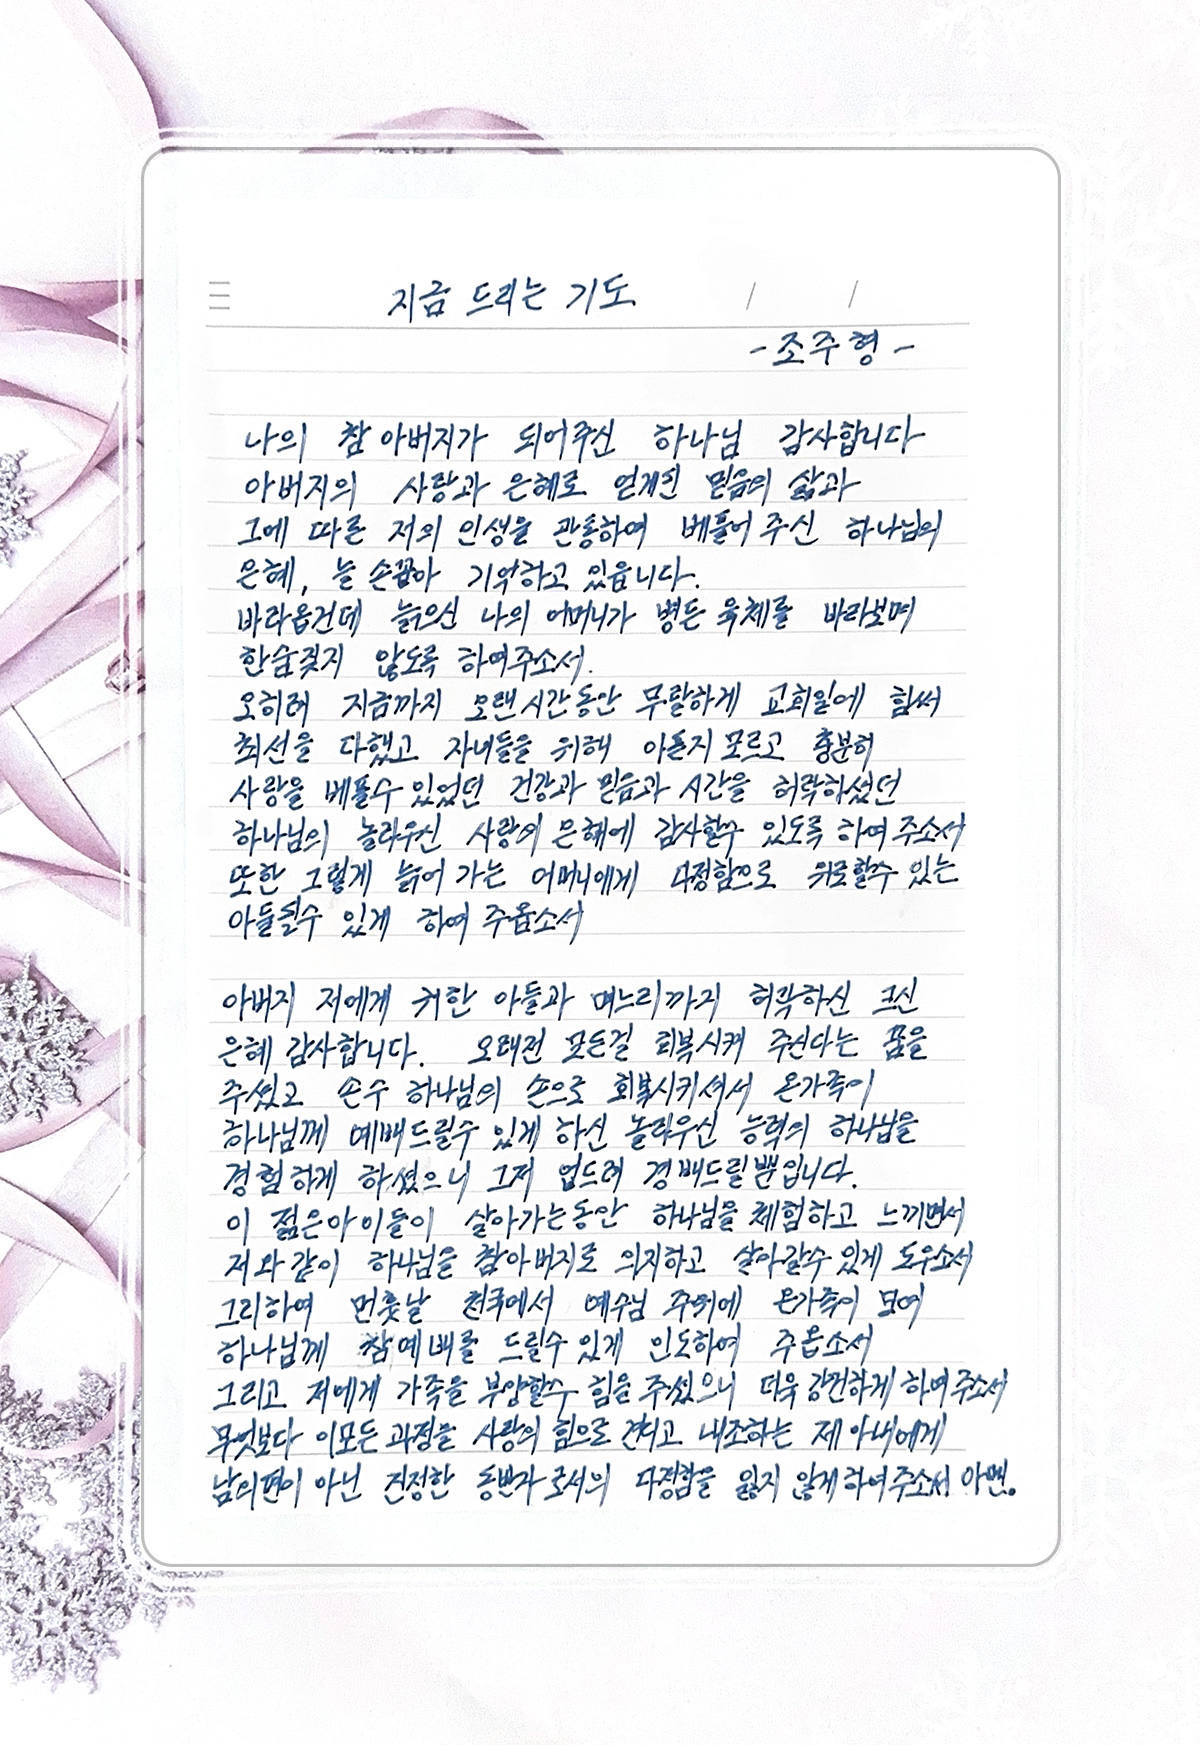 지금 드리는 기도
- 조주형 -
나의 참 아버지가 되어주신 하나님 감사합니다
아버지의 사랑과 은혜로 얻게된 믿음의 삶과
그에 따른 저의 인생을 관통하여 베풀어 주신 하나님의
은혜, 늘 손꼽아 기억하고 있읍니다.
바라옵건데 늙으신 나의 어머니가 병든 육체를 바라보며
한숨짖지 않도록 하여주소서.
오히려 지금까지 오랜시간동안 무탈하게 교회일에 힘써
최선을 다했고 자녀들을 위해 아픈지 모르고 충분히
사랑을 베풀수 있었던 건강과 믿음과 시간을 허락하셨던
하나님의 놀라우신 사랑의 은혜에 감사할수 있도록 하여주소서
또한 그렇게 늙어 가는 어머니에게 다정함으로 위로할수 있는
아들될수 있게 하여 주옵소서
아버지 저에게 귀한 아들과 며느리까지 허락하신 크신
은혜 감사합니다. 오래전 모든걸 회복시켜 주신다는 꿈을
주셨고 손수 하나님의 손으로 회복시키셔서 온가족이
하나님께 예배드릴수 있게 하신 놀라우신 능력의 하나님을
경험하게 하셨으니 그저 엎드려 경배드릴뿐입니다.
이 젊은아이들이 살아가는동안 하나님을 체험하고 느끼면서
저와같이 하나님을 참아버지로 의지하고 살아갈수 있게 도우소서
그리하여 먼훗날 천국에서 예수님 주위에 온가족이 모여
하나님께 참예배를 드릴수 있게 인도하여 주옵소서
그리고 저에게 가족을 부양할수 힘을 주셨으니 더욱 강건하게 하여주소서
무엇보다 이모든 과정을 사랑의 힘으로 견디고 내조하는 제 아내에게
남의편이 아닌 진정한 동반자로서의 다정함을 잃지 않게하여주소서 아멘.